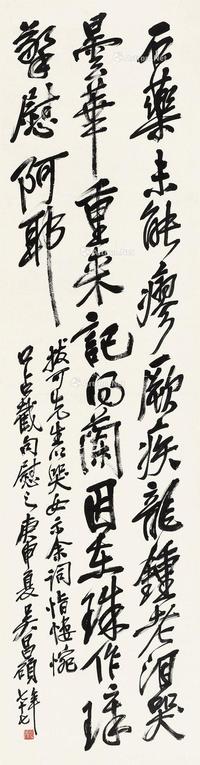 石药未能瘳厥疾龍鍾老泪哭
曇華重来記得蘭因在珠作掌
擎慰阿耶
拔可先生以哭女示余詞恉悽惋
口占截句慰之庚申夏吴昌碩
年七十七